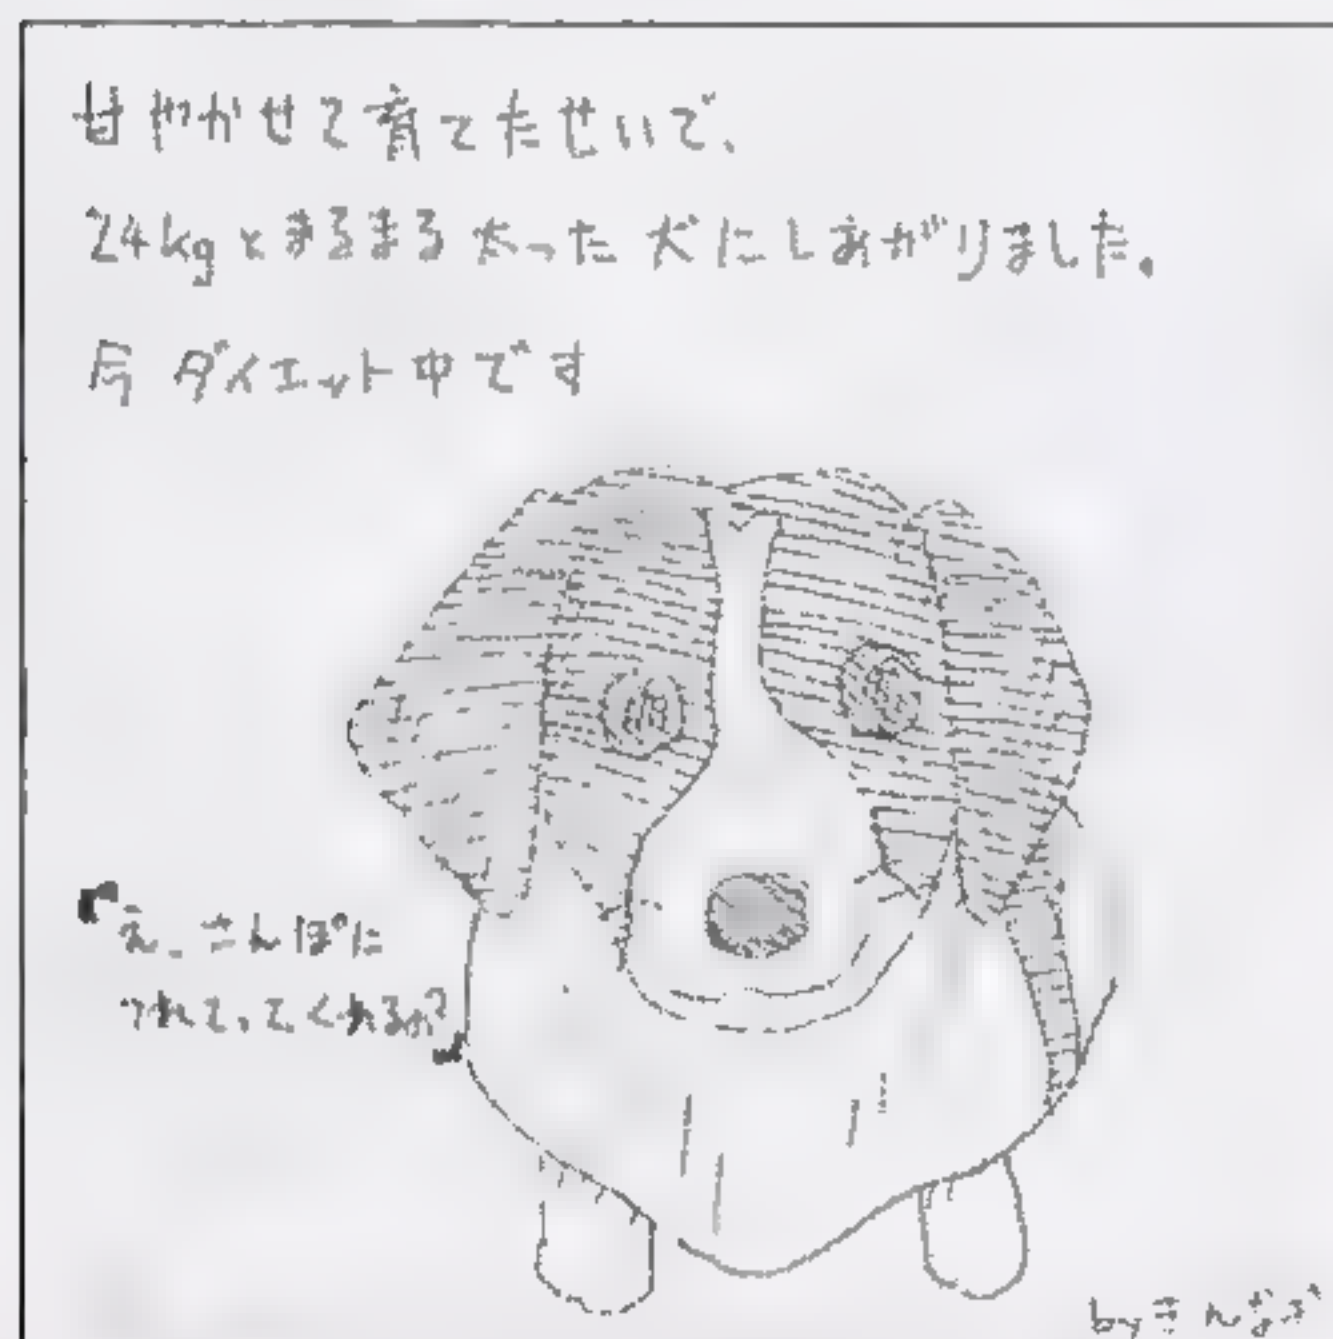 甘やかせて育てたせいで、
24kgとまるまる太った犬にしあがりました。
今ダイエット中です
「え、さんぽに
つれてってくれるの?」
by